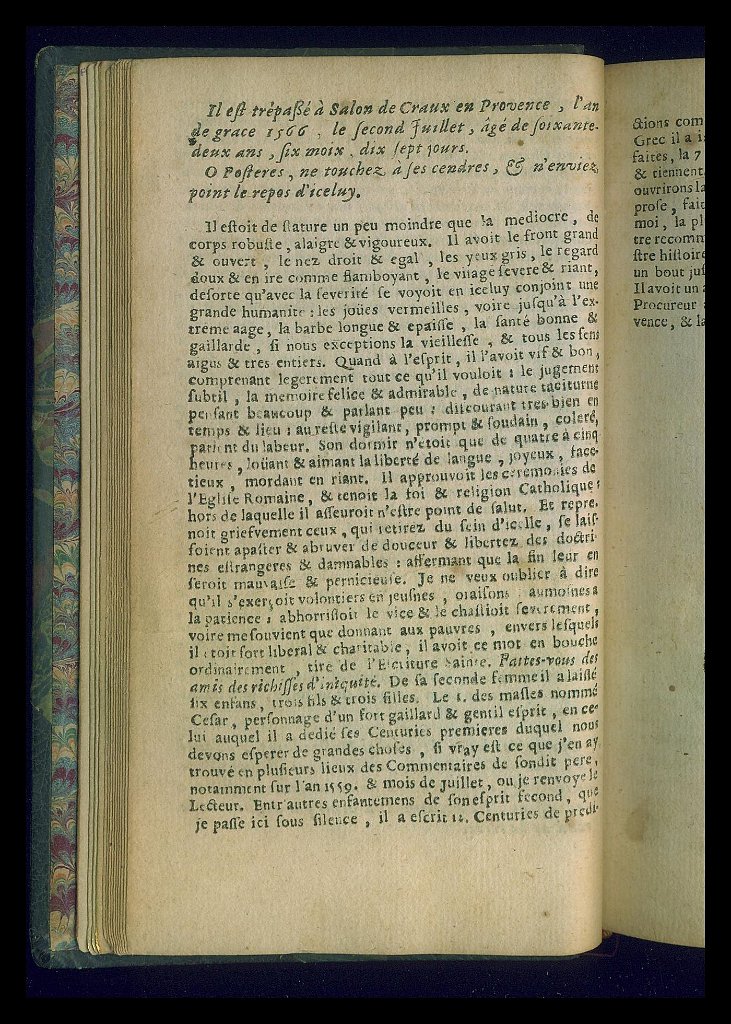 Il eſt trépaßé à Salon de Craux en Provence, l'an
de grace 1566, le ſecond Juillet, âgé de ſoixante-
deux ans, ſix moix, dix ſept jours.
O Poſteres, ne touchez à ſes cendres, & n'enviez
point le repos d'iceluy.
Il eſtoit de ſtature un peu moindre que la mediocre, de
corps robuſte, alaigre & vigoureux. Il avoit le front grand
& ouvert, le nez droit & egal, les yeux gris, le regard
doux & en ire comme flamboyant, le viſage ſevere & riant,
deſorte qu'avec la ſeverité ſe voyoit en iceluy conjoint une
grande humanité: les joües vermeilles, voire juſqu'à l'ex-
treme aage, la barbe longue & epaiſſe, la ſanté bonne &
gaillarde, ſi nous exceptions la vieilleſſe, & tous les ſens
aigus & tres entiers. Quand à l'eſprit, il l'avoit vif & bon,
comprenant legerement tout ce qu'il vouloit: le jugement
ſubtil, la memoire felice & admirable, de nature taciturne
penſant beaucoup & parlant peu: diſcourant tres-bien en
temps & lieu: au reſte vigilant, prompt & ſoudain, coleré,
patient du labeur. Son dormir n'étoit que de quatre à cinq
heures, loüant & aimant la liberté de langue, joyeux, face-
tieux, mordant en riant. Il approuvoit les ceremonies de
l'Egliſe Romaine, & tenoit la foi & religion Catholique:
hors de laquelle il aſſeuroit n'eſtre point de ſalut. Et repre-
noit griefvement ceux, qui retirez du ſein d'icelle, ſe laiſ-
ſoient apaſter & abruver de douceur & libertez des doctri-
nes eſtrangeres & damnables: affermant que la fin leur en
ſeroit mauvaiſe & pernicieuſe. Je ne veux oublier à dire
qu'il s'exerçoit volontiers en jeuſnes, oraiſons, aumoines a
la patience: abhorriſſoit le vice & le chaſtioit ſeverement,
voire me ſouvient que donnant aux pauvres, envers leſquels
il étoit fort liberal & charitable, il avoit ce mot en bouche
ordinairement, tiré de l'Ecriture Sainte. Faites-vous des
amis des richiſſes d'iniquité. De ſa ſeconde femme il a laiſſé
ſix enfans, trois fils & trois filles. Le 1. des maſles nommé
Ceſar, perſonnage d'un fort gaillard & gentil eſprit, en ce-
lui auquel il a dedié ſes Centuries premieres duquel nous
devons eſperer de grandes choſes, ſi vray eſt ce que j'en ay
trouvé en pluſieurs lieux des Commentaires de ſondit pere,
notamment ſur l'an 1559. & mois de Juillet, ou je renvoye le
Lecteur. Entr'autres enfantemens de ſon eſprit fecond, que
je paſſe ici ſous ſilence, il a eſcrit 12. Centuries de predi-
ctions com
Grec il a
faites, la 7
& tiennent
ouvrirons la
proſe, fait
moi, la pl
tre recomm
ſtre hiſtoire
un bout juſ
Il avoit un
Procureur
vence, & la